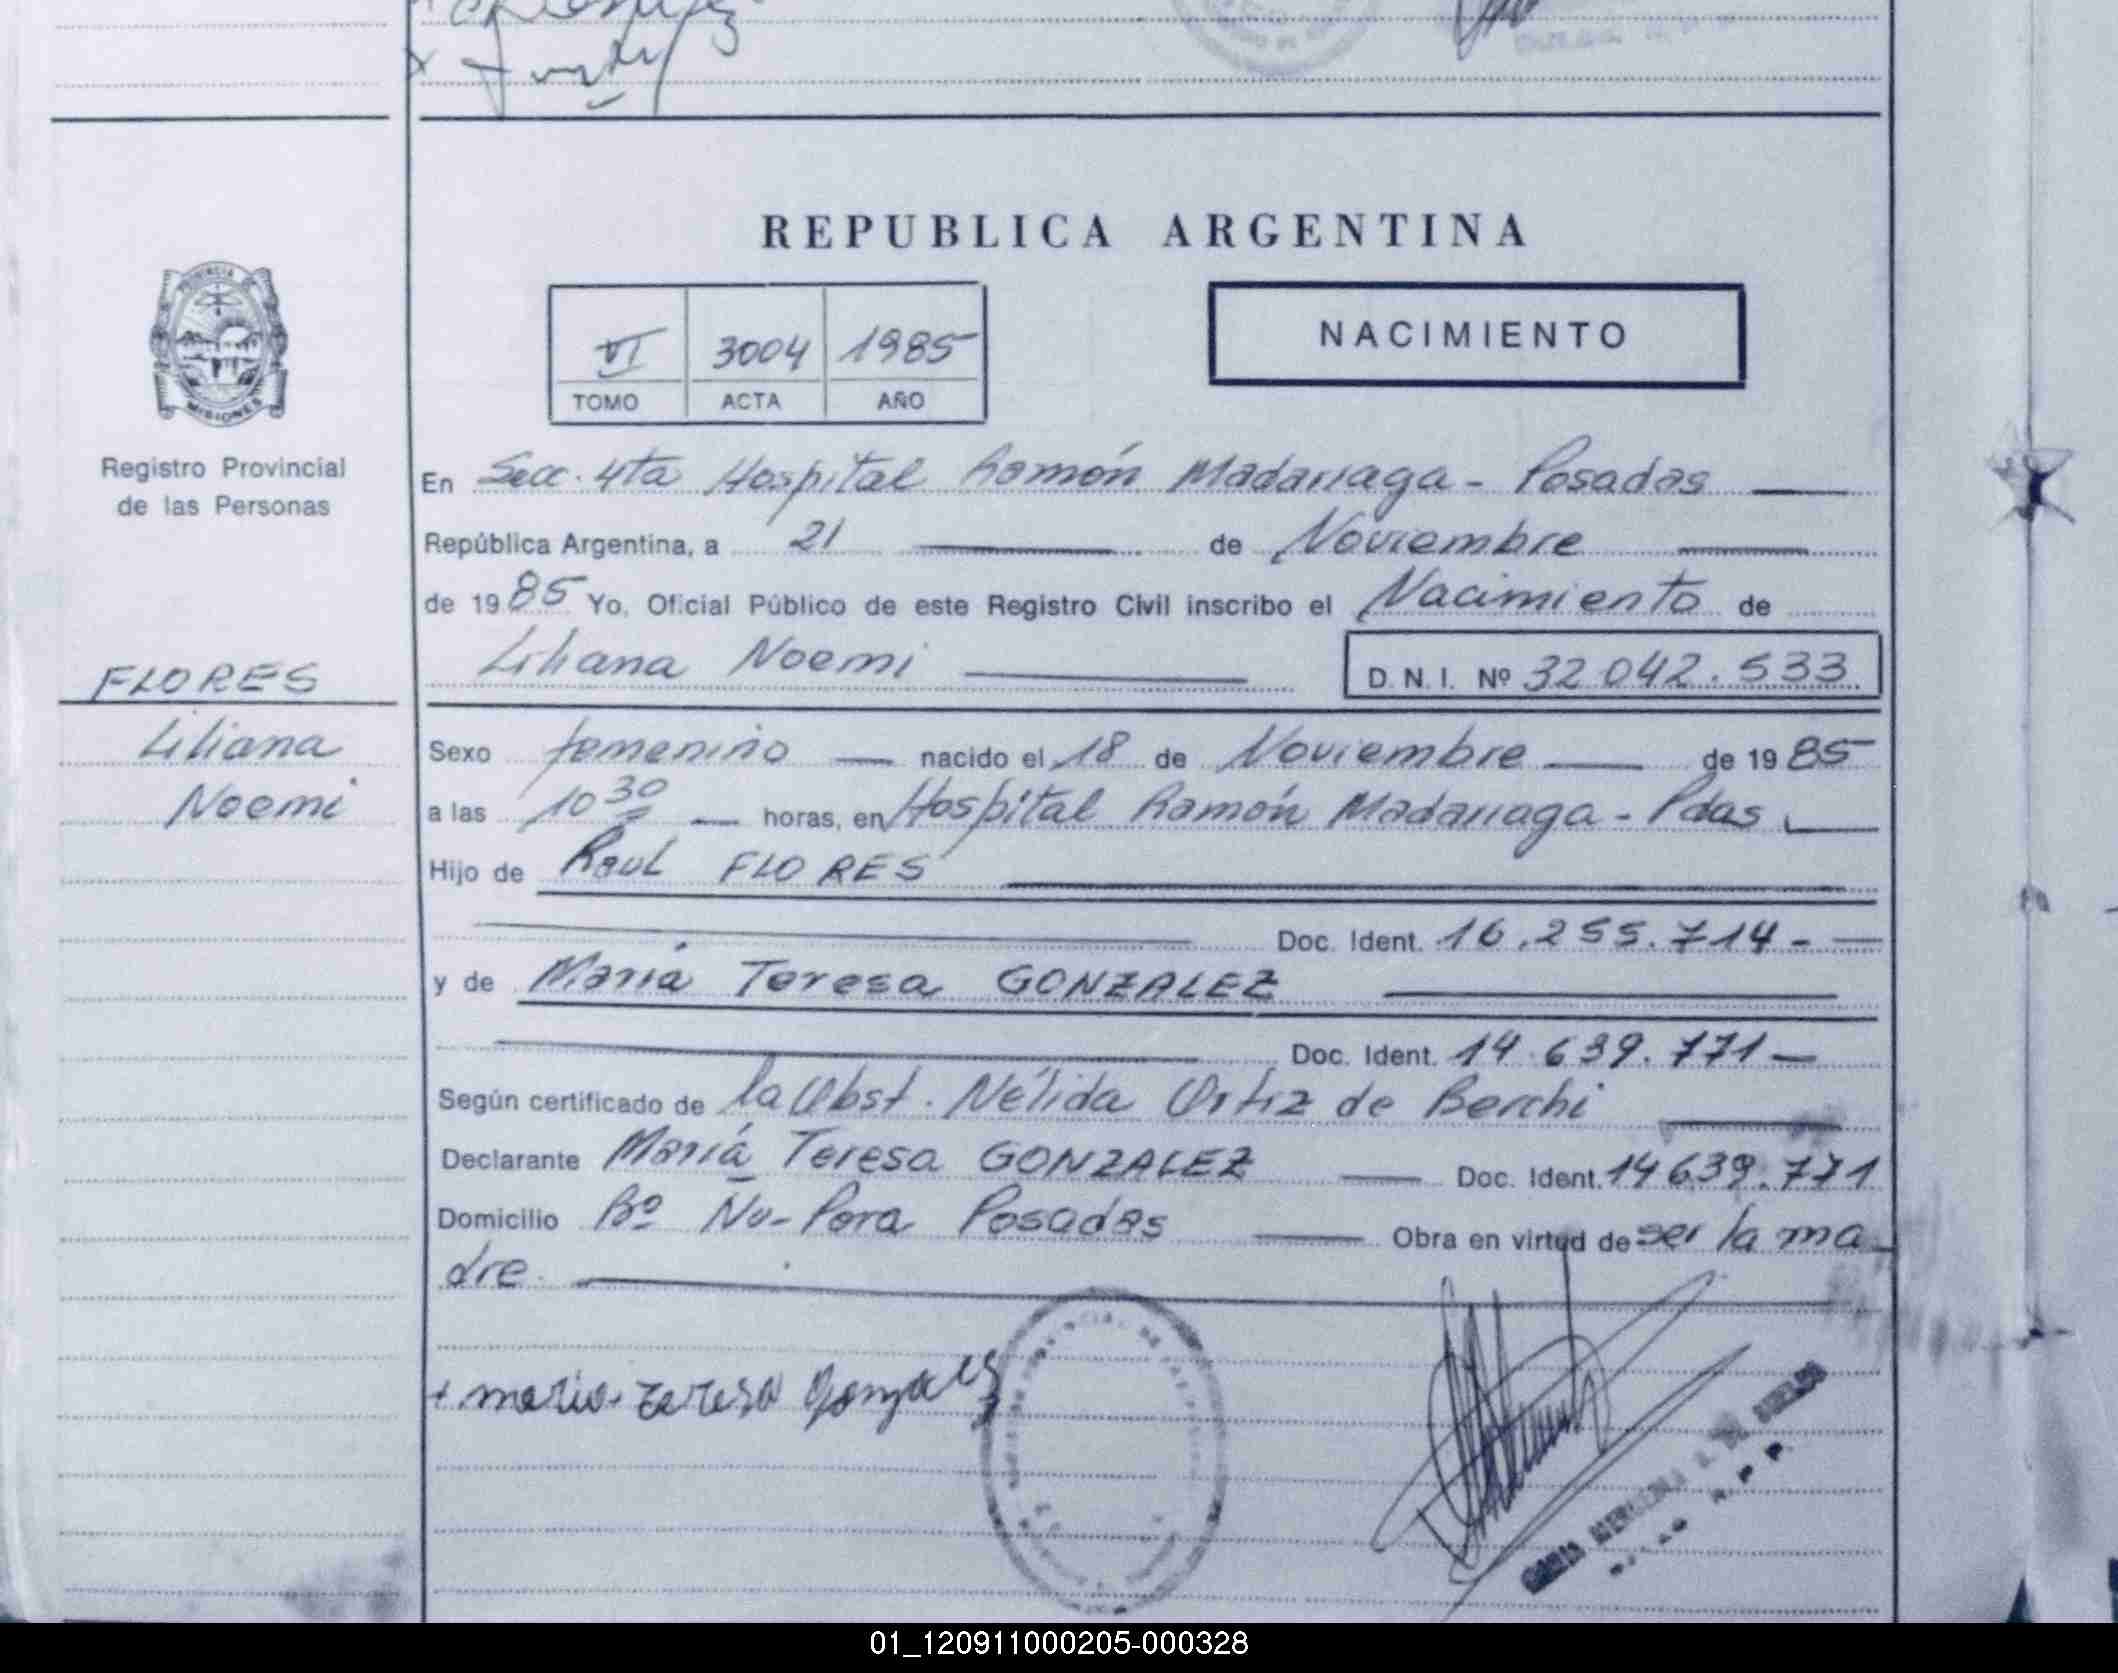 REPUBLICA ARGENTINA
VI 3004 1985
TOMO ACTA AÑO
NACIMIENTO
PROVINCIA DE
MISIONES
Registro Provincial
de las Personas
FLORES
Liliana
Noemi
En Secc. 4ta Hospital Ramón Madariaga - Posadas
República Argentina, a 21 de Noviembre
de 1985 Yo, Oficial Público de este Registro Civil inscribo el Nacimiento de
Liliana Noemi
D.N.I. Nº 32 042.533
Sexo femenino nacido el 18 de Noviembre de 1985
a las 10 30 horas, en Hospital Ramón Madariaga - Pdas
Hijo de Raul FLORES
Doc. Ident. 16.255.714-
y de María Teresa GONZALEZ
Doc. Ident. 14.639.771
Según certificado de la Obst. Nélida Ortiz de Berchi
Declarante María Teresa GONZALEZ Doc. Ident. 14639.771
Domicilio Bº Ñu-Pora Posadas Obra en virtud de ser la ma-
dre.
+ maria teresa Gonzalez
01_120911000205-000328